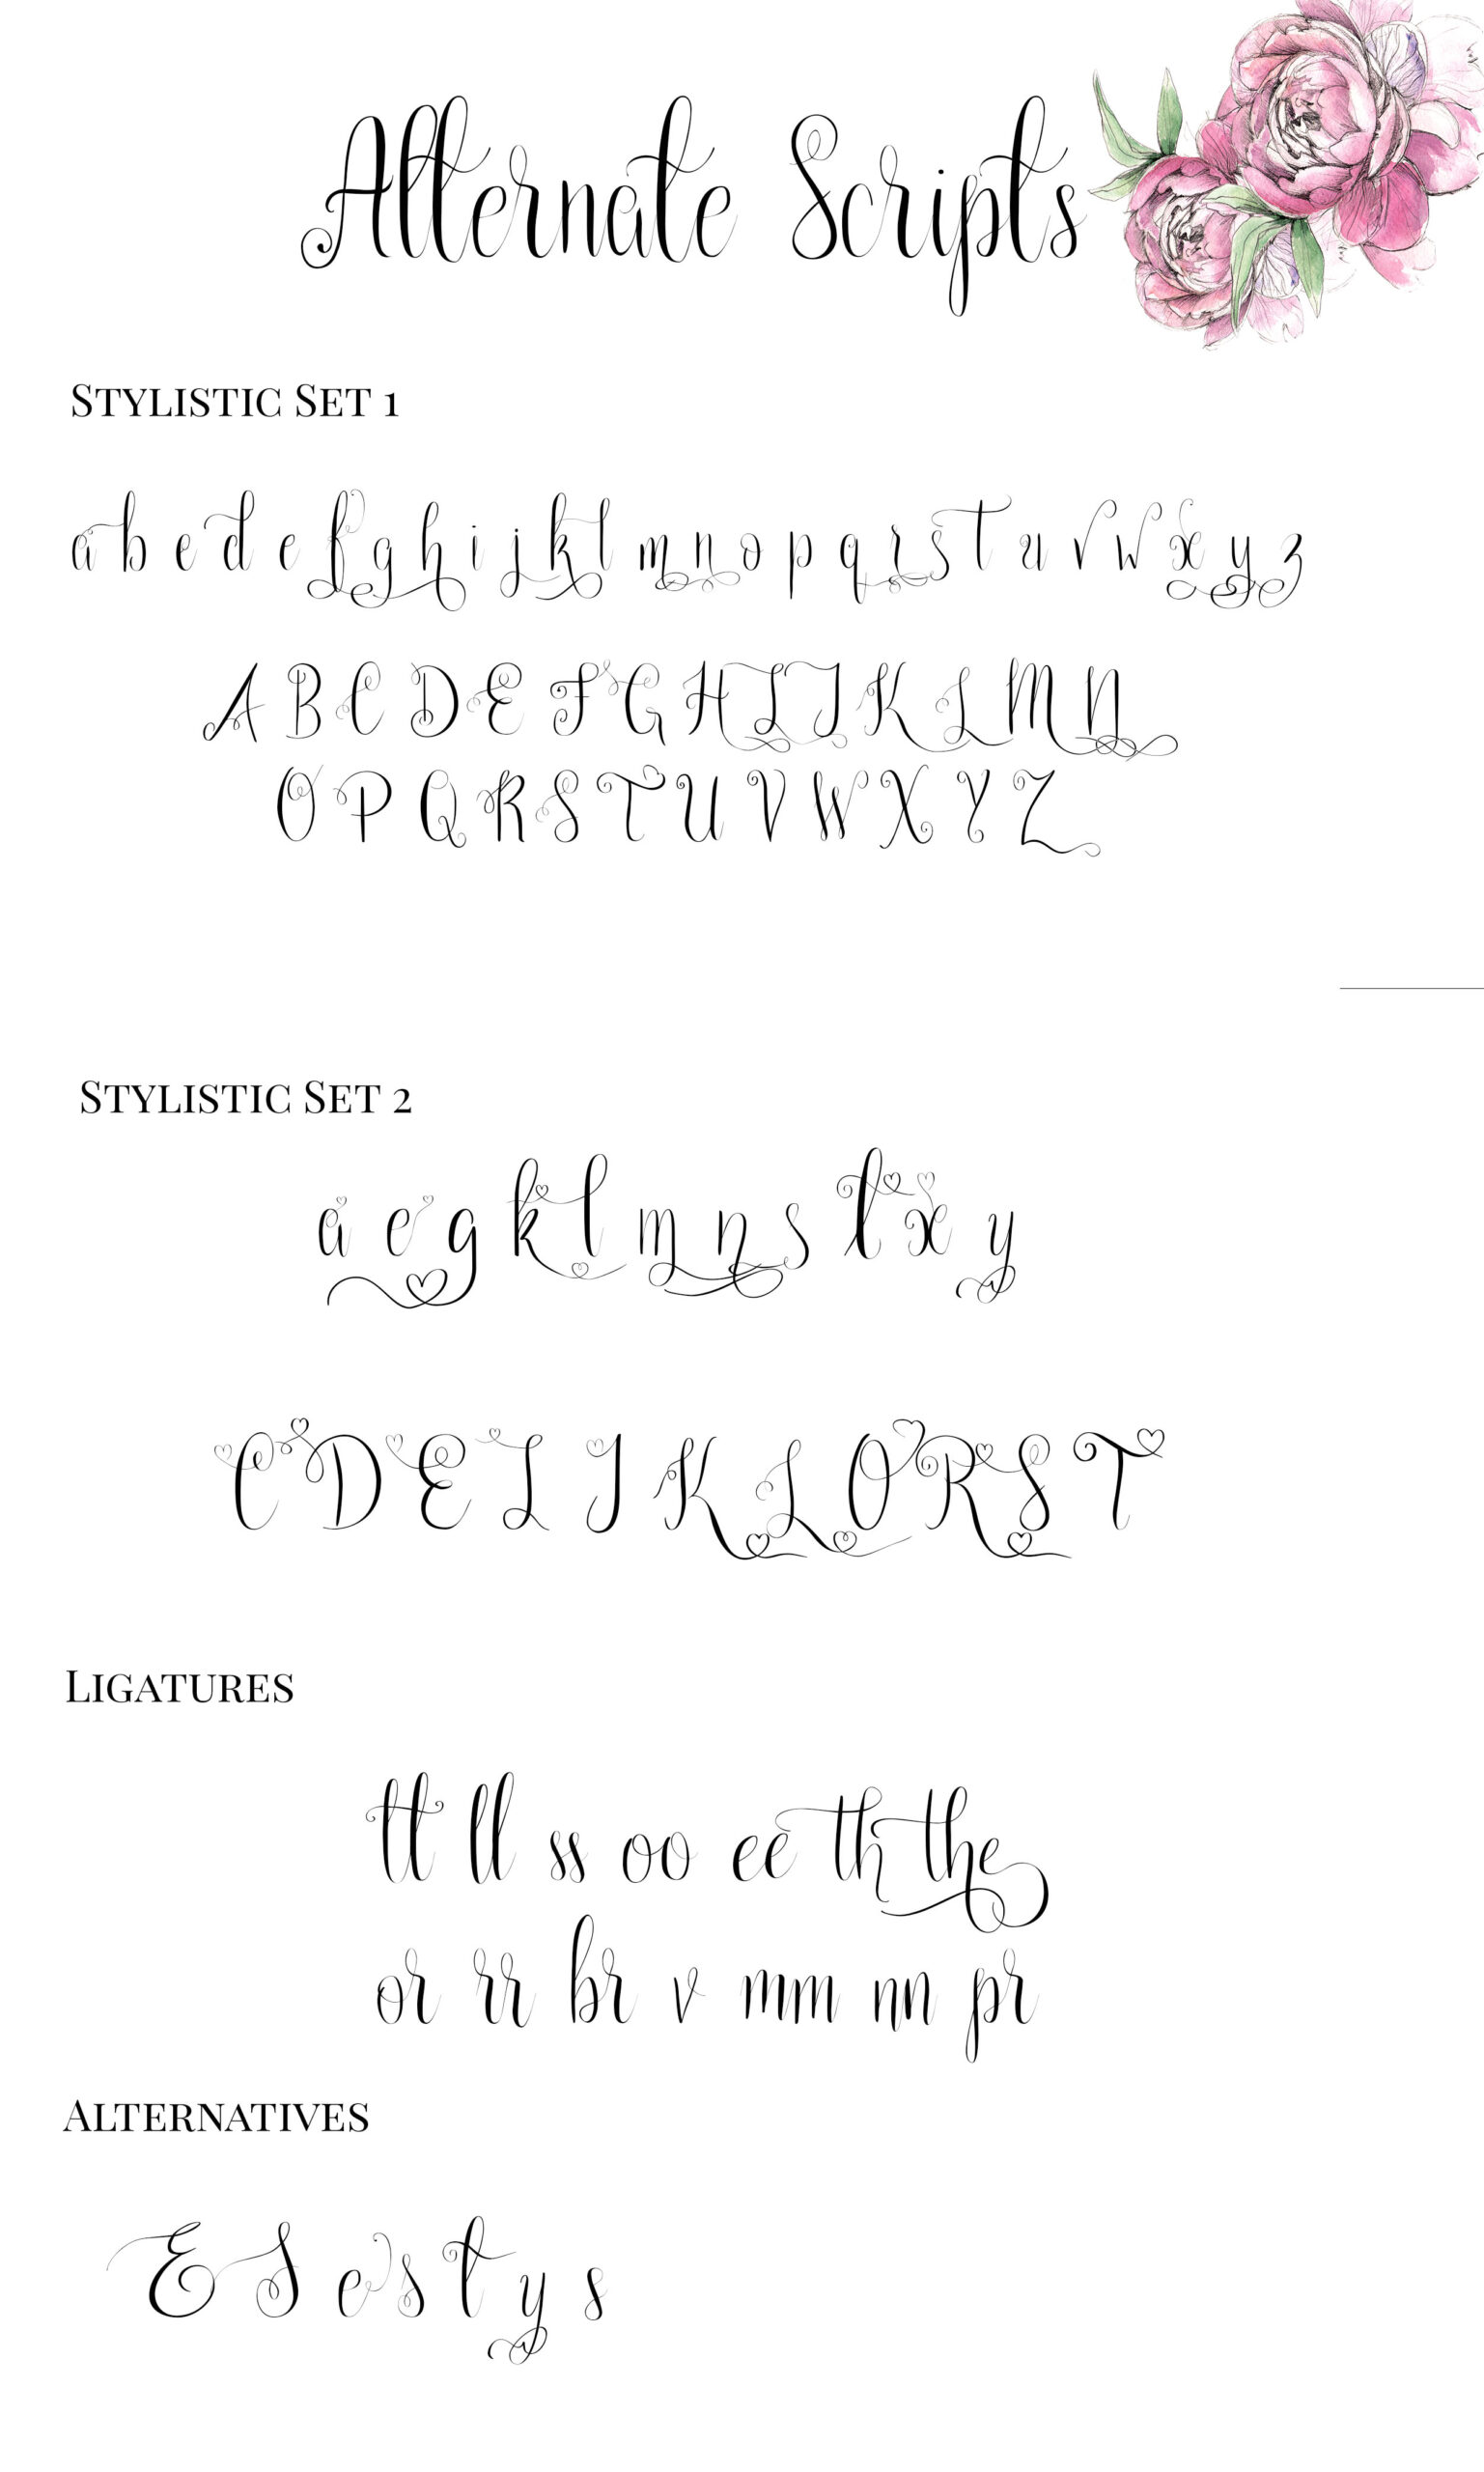 Alternate Scripts
Stylistic Set 1
a b e d e f g h i j k l m n o p q r s t u v w x y z
A B C D E F G H I J K L M N
O P Q R S T U V W X Y Z
Stylistic Set 2
a e g k l m n s t x y
C D E I J K L O R S T
Ligatures
tt ll ss oo ee th the
or rr br v mm nn pr
Alternatives
E S e s t y s